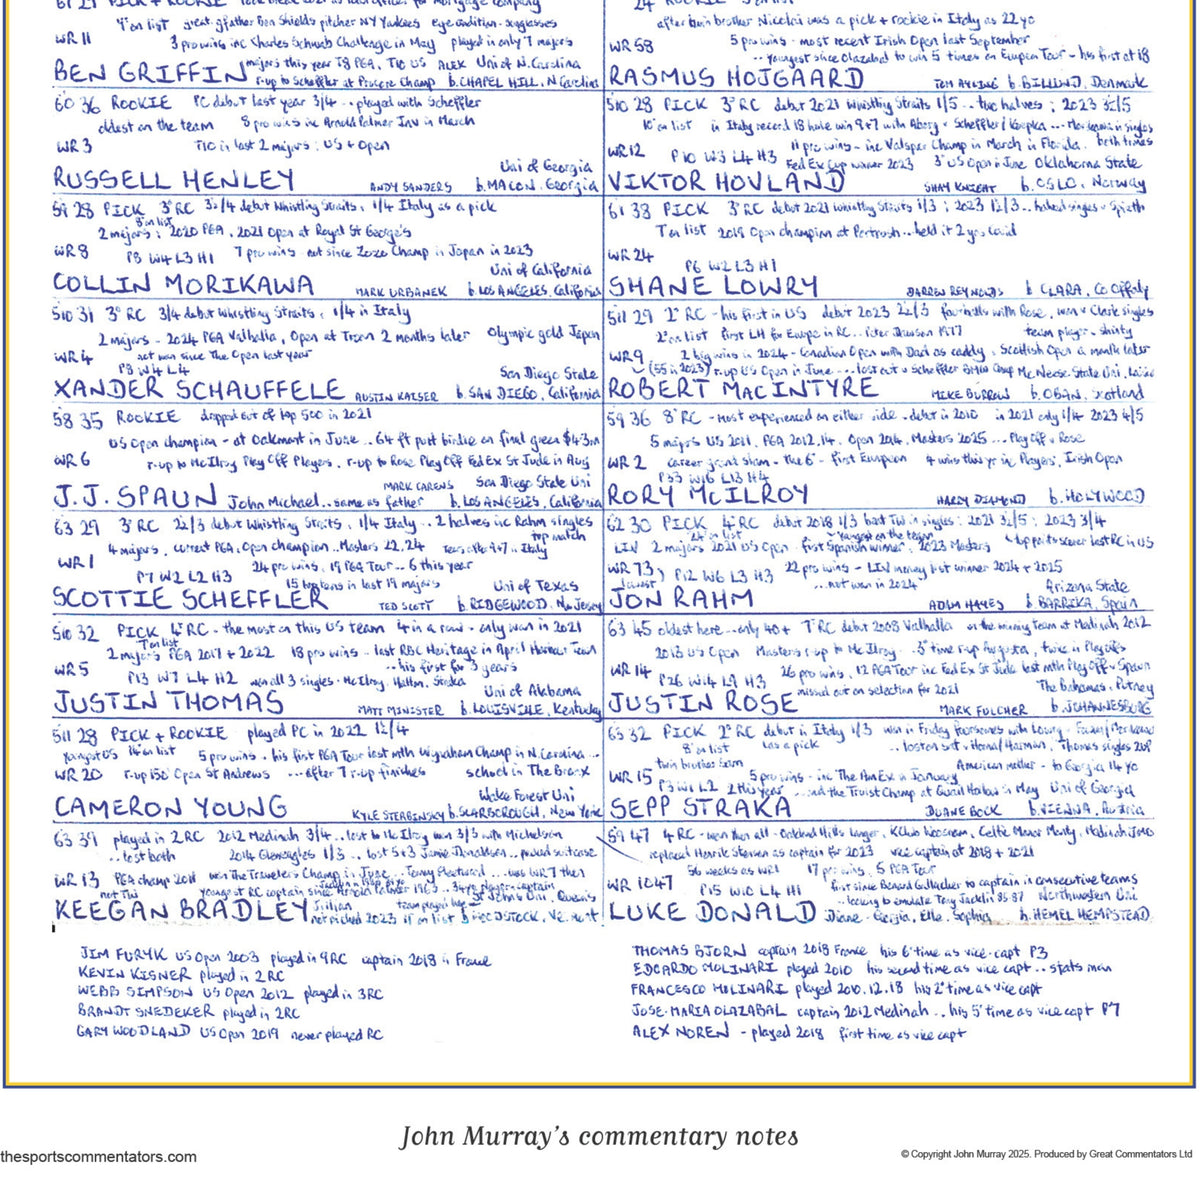 11 on list great g/father Ben Shields pitcher NY Yankees eye condition - sunglasses
WR 11 3 pro wins inc Charles Schwab Challenge in May played in only 7 majors
majors this year T8 PGA, T10 US ALEX Uni of N.Carolina
BEN GRIFFIN r-up to Scheffler at Procore Champ b. CHAPEL HILL, N Carolina
60 36 ROOKIE PC debut last year 3/4 .. played with Scheffler
oldest on the team 8 pro wins inc Arnold Palmer Inv in March
WR 3 T10 in last 2 majors : US + Open
Uni of Georgia
RUSSELL HENLEY ANDY SANDERS b. MACON, Georgia
59 28 PICK 3° RC 3½/4 debut Whistling Straits, 1/4 Italy as a pick
2 majors: 2020 PGA, 2021 Open at Royal St George's
WR 8 P8 W4 L3 H1 7 pro wins - not since Zozo Champ in Japan in 2023
Uni of California
COLLIN MORIKAWA MARK URBANEK b. LOS ANGELES, California
510 31 3° RC 3/4 debut Whistling Straits, 1/4 in Italy
2 majors - 2024 PGA Valhalla, Open at Troon 2 months later Olympic gold Japan
WR 4 not won since The Open last year
P8 W4 L4 San Diego State
XANDER SCHAUFFELE AUSTIN KAISER b. SAN DIEGO, California
58 35 ROOKIE dropped out of top 500 in 2021
US Open champion - at Oakmont in June .. 64 ft putt birdie on final green $4.3m
WR 6 r-up to McIlroy Play Off Players, r-up to Rose Play Off Fed Ex St Jude in Aug
MARK CARENS San Diego State Uni
J.J. SPAUN John Michael.. same as father b. LOS ANGELES, California
63 29 3° RC 2½/3 debut Whistling Straits, 1/4 Italy .. 2 halves inc Rahm singles
top match
4 majors, current PGA, Open champion .. Masters 22,24 Tears after 9+7 in Italy
WR 1 24 pro wins, 19 PGA Tour .. 6 this year
P7 W2 L2 H3 15 top tens in last 19 majors Uni of Texas
SCOTTIE SCHEFFLER TED SCOTT b. RIDGEWOOD, N. Jersey
510 32 PICK 4° RC - the most on this US team 4 in a row - only won in 2021
2 majors PGA 2017 + 2022 18 pro wins - last RBC Heritage in April Harbour Town
WR 5 ..his first for 3 years
P13 W7 L4 H2 won all 3 singles - McIlroy, Hatton, Straka
Uni of Alabama
JUSTIN THOMAS MATT MINISTER b. LOUISVILLE, Kentucky
511 28 PICK + ROOKIE played PC in 2022
youngest US 14 on list 5 pro wins - his first PGA Tour last mth Wyndham Champ in N. Carolina ...
WR 20 r-up 150° Open St Andrews ...after 7 r-up finishes school in The Bronx
Wake Forest Uni
CAMERON YOUNG KYLE STERBINSKY b. SCARBOROUGH, New York
63 39 played in 2 RC 2012 Medinah 3/4 ... lost to McIlroy won 3/3 with Mickelson
.. lost both 2014 Gleneagles 1/3 .. lost 5+3 Jamie Donaldson .. packed suitcase
WR 13 PGA champ 2011 won The Travelers Champ in June
youngest RC captain since Arnold Palmer 1963
St John's Uni, Queens
KEEGAN BRADLEY Jillian not picked 2023 11 on list b. WOODSTOCK, Vermont
JIM FURYK US Open 2003 played in 9 RC captain 2018 in France
KEVIN KISNER played in 2 RC
WEBB SIMPSON US Open 2012 played in 3 RC
BRANDT SNEDEKER played in 2 RC
GARY WOODLAND US Open 2019 never played RC
after twin brother Nicolai was a pick + rookie in Italy as 22 yo
WR 58 5 pro wins - most recent Irish Open last September
... youngest since Olazabal to win 5 times on Europn Tour - his first at 18
RASMUS HOJGAARD b. BILLUND, Denmark
510 28 PICK 3° RC debut 2021 Whistling Straits 1/5 .. two halves : 2023 3½/5
10 on list in Italy record 18 hole win 9+7 with Aberg v Scheffler / Koepka
both times
WR 12 P10 W3 L4 H3 pro wins - inc Valspar Champ in March in Florida
Fed Ex Cup winner 2023 3° US Open in June Oklahoma State
VIKTOR HOVLAND SHAY KNIGHT b. OSLO, Norway
61 38 PICK 3° RC debut 2021 Whistling Straits 1/3 ; 2023 1½/3 .. halved singles v Spieth
7 on list 2019 Open champion at Portrush .. held it 2 yrs covid
WR 24
P6 W2 L3 H1
SHANE LOWRY DARREN REYNOLDS b CLARA, Co Offaly
511 29 2° RC - his first in US debut 2023 2½/3 fourballs with Rose, won v Clark singles
2° on list First LH for Europe in RC .. Peter Dawson 1977 team player - shinty
WR 9 2 big wins in 2024 - Canadian Open with Dad as caddy, Scottish Open a month later
(55 in 2023) r-up US Open in June ... lost out v Scheffler BMW Champ McNeese State Uni,
ROBERT MACINTYRE MIKE BURROW b. OBAN, Scotland
59 36 8° RC - most experienced on either side - debut in 2010 in 2021 only 1/4 2023 4/5
5 majors US 2011, PGA 2012,14, Open 2014, Masters 2025 ... Play Off v Rose
WR 2 career grand slam - the 6° - first European 4 wins this yr inc Players, Irish Open
P33 W16 L13 H4
RORY McILROY HARRY DIAMOND b. HOLYWOOD
62 30 PICK 4° RC debut 2018 1/3 beat TW in singles ; 2021 3½/5 ; 2023 3/4
LIV 2 majors 2021 US Open - first Spanish winner, 2023 Masters top pts scorer last RC in US
WR 73 P12 W6 L3 H3 22 pro wins - LIV money list winner 2024 + 2025
lowest ... not won in 2024 Arizona State
JON RAHM ADAM HAYES b. BARRIKA, Spain
63 45 oldest here - only 40+ 7° RC debut 2008 Valhalla on the winning team at Medinah 2012
2013 US Open Masters r-up to McIlroy - 3° time r-up Augusta, twice in Play Offs
WR 14 P26 W14 L9 H3 26 pro wins, 12 PGA Tour inc Fed Ex St Jude last mth Play Off v Spaun
missed out on selection for 2021 The Bahamas, Putney
JUSTIN ROSE MARK FULCHER b. JOHANNESBURG
63 32 PICK 2° RC debut in Italy 1/3 won in Friday foursomes with Lowry
8 on list was a pick Thomas singles 2up
twin brother Sam American mother - to Georgia 14 yo
WR 15 P3 W1 L2 5 pro wins - inc The AmEx in January
2 this year ... and the Truist Champ at in May Uni of Georgia
SEPP STRAKA DUANE BOCK b. VIENNA, Austria
59 47 4 RC - won them all - Oakland Hills Langer, K Club Woosnam, Celtic Manor Monty, Medinah JMO
replaced Henrik Stenson as captain for 2023 vice captain at 2018 + 2021
56 weeks as WR1 17 pro wins, 5 PGA Tour
WR 1047 P15 W10 L4 H1 first since Bernard Gallacher to captain in consecutive teams
... looking to emulate Tony Jacklin 85 87 Northwestern Uni
LUKE DONALD Diane - Georgia, Elle, Sophia b. HEMEL HEMPSTEAD
THOMAS BJORN captain 2018 France his 6° time as vice-capt P3
EDOARDO MOLINARI played 2010 his second time as vice capt .. stats man
FRANCESCO MOLINARI played 2010.12.18 his 2° time as vice capt
JOSE-MARIA OLAZABAL captain 2012 Medinah .. his 5° time as vice capt P7
ALEX NOREN - played 2018 first time as vice capt
John Murray's commentary notes
thesportscommentators.com
© Copyright John Murray 2025. Produced by Great Commentators Ltd